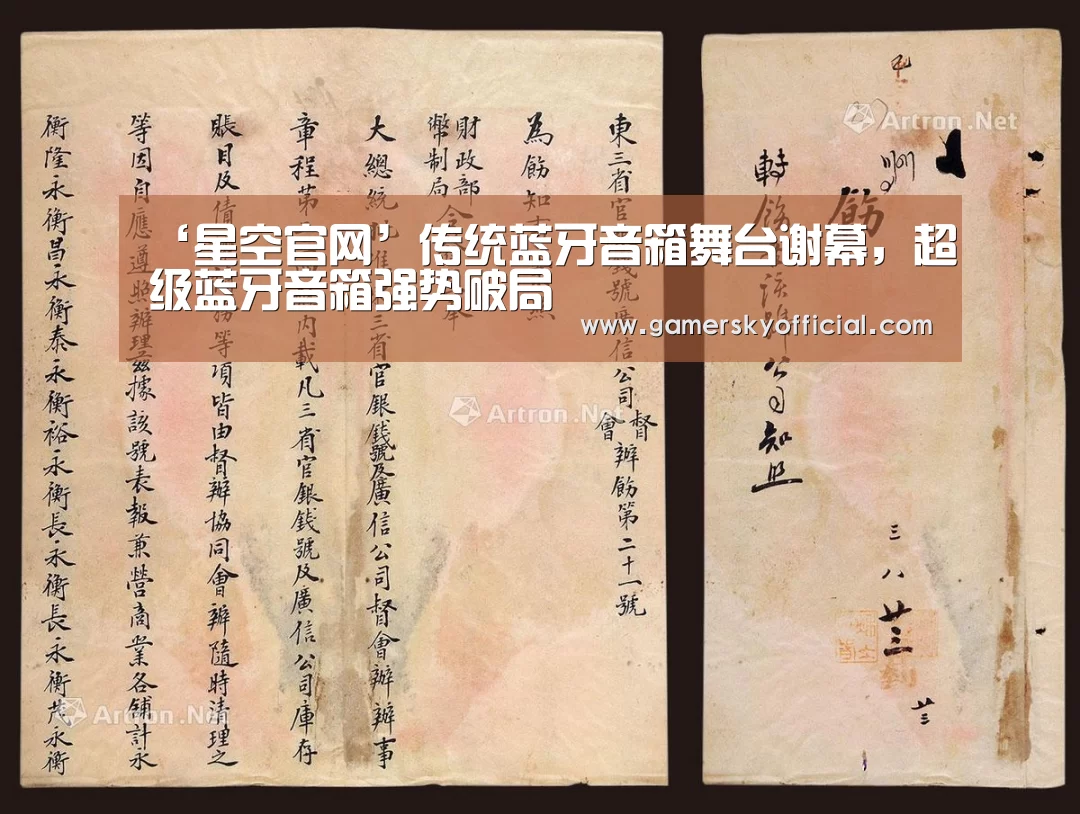 ‘星空官网’传统蓝牙音箱舞台谢幕，超
级蓝牙音箱强势破局
www.gamerskyofficial.com
東三省官錢號廣信公司督會辦飭第二十一號
為飭知事
財政部
幣制局
大總統批准三省官銀錢號及廣信公司督會辦辦事
章程第內載凡三省官銀錢號及廣信公司庫存
賬目及債務等項皆由督辦協同會辦隨時清理之
等因自應遵照辦理茲據該號表報兼營商業各鋪計永
衡隆永衡昌永衡泰永衡裕永衡長永衡長永衡茂永衡
飭
轉飭該公司知照
三 八 廿三
廿三
到
Artron.Net
Artron.Net
Artron.Net